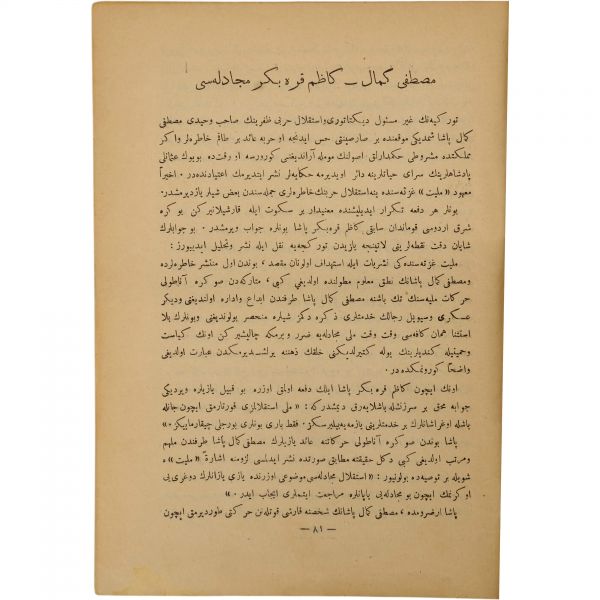 مصطفی كمال ـ كاظم قره بكر مجادله‌سی
توركیه‌نك غیر مسئول دیكتاتوری واستقلال حربی ظفرینك صاحب وحیدی مصطفی
كمال پاشا شمدیكی موقعنده بر صارصینتی حس ایدنجه او حربه عائد بر طاقم خاطره‌لر وا كر
مملكتده مشروطی حكمدارلق اصولنك موملە آراندیغنی كورورسه او رقتده بویوك عثمانلی
پادشاهلرینك سرای حیاتلرینه دائر اویدیرمه حكایه‌لر نشر ایتدیرمك اعتیادنده‌در . اخیراً
معهود « ملیت » غزته‌سنده ینه استقلال حربنك خاطره‌لری جمله‌سندن بعض شیلر یازدیرمشدر.
بونلر هر دفعه تكرار ایدیلیشنده معنیدار بر سكوت ایله قارشیلانیركن بو كره
شرق اردوسی قوماندان سابقی كاظم قره‌بكر پاشا بونلره جواب ویرمشدر . بو جوابلرك
شایان دقت نقطه‌لرینی لاتینجه یازیدن توركجه‌یه نقل ایله نشر وتحلیل ایدییورز :
ملیت غزته‌سنده‌كی نشریات ایله استهداف اولونان مقصد ، بوندن اول منتشر خاطره‌لرده
ومصطفی كمال پاشانك نطق معلوم مطولنده اولدیغی كبی ، متاركه‌دن صوكره آناطولی
حركات ملیه‌سنك تك باشنه مصطفی كمال پاشا طرفندن ابداع واداره اولندیغنی ودیكر
عسكری وسیویل رجالك خدمتلری ذكره دكمز شیلره منحصر بولوندیغنی وبونلرك بلا
استثنا همان كافه‌سی وقت وقت ملی مجادله‌یه ضرر ویرمكه چالیشیركن اونك كیاست
وحمیتیله كندیلرینك یوله كتیرلدیكنی خلقك ذهننه یرلشدیرمكدن عبارت اولدیغی
واضحاً كورونمكده‌در .
اونك ایچون كاظم قره بكر پاشا ایلك دفعه اولتی اوزره بو قبیل یازیلره ویردیكی
جوابه محق بر سرزنشله باشلایه‌رق دیمشدر كه : « ملی استقلالمزی قورتارمق ایچون جانله
باشله اوغراشانلرك بر خدمتلرینی یازمه‌یه‌بیلیرسكز. فقط باری بونلری بورجلی چیقارماییكز.»
پاشا بوندن صوكره آناطولی حركاتنه عائد یازیلرك مصطفی كمال پاشا طرفندن ملهم
ومرتب اولدیغی كبی دكل حقیقته مطابق صورتده نشر ایدلمسی لزومنه اشارةً « ملیت » ه
شویله بر توصیه‌ده بولونیور : « استقلال مجادله‌سی موضوعی اوزرنده یازی یازانلرك دوغری بی
اوكرنمك ایچون بو مجادله‌یی یاپانلره مراجعت ایتملری ایجاب ایدر . »
پاشا ارضرومده ، مصطفی كمال پاشانك شخصنه قارشی قوتله‌نن حركتی طوردیرمق ایچون
— ٨١ —